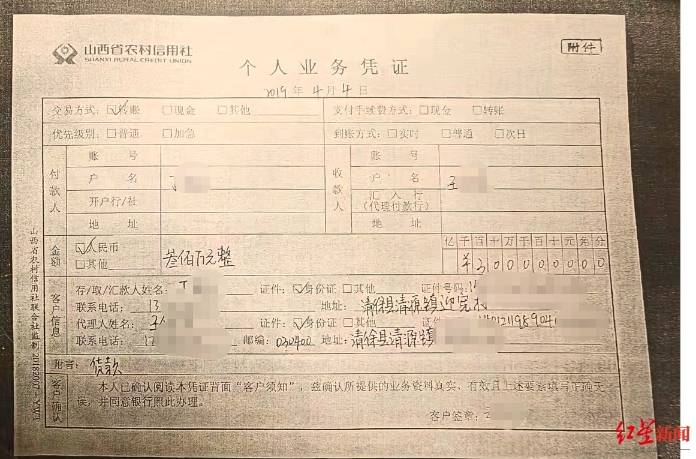 山西省农村信用社
SHANXI RURAL CREDIT UNION
附件
个人业务凭证
2019年4月4日
交易方式:☑转账 □现金 □其他 支付手续费方式:□现金 □转账
优先级别:□普通 □加急 到账方式:□实时 □普通 □次日
付款人 账号 收款人 账号
户名 丁 户名 王
开户行/社 汇入行(代理付款行)
地址 地址
金额 ☑人民币 □其他 叁佰万元整 亿千百十万千百十元角分
¥300000000
客户信息 存/取/汇款人姓名:丁 证件:☑身份证 □其他 证件号码:1
联系电话:13 地址:清徐县清源镇迎宪
代理人姓名:王 证件:☑身份证 □其他 证件
联系电话:1 邮编:030400 地址:清徐县清源镇
附言:货款
客户确认 本人已确认阅读本凭证背面“客户须知”,兹确认所提供的业务资料真实、有效且上述要素填写正确无
误,并同意银行照此办理。
客户签章:
山西省农村信用社联合社监制
红星新闻